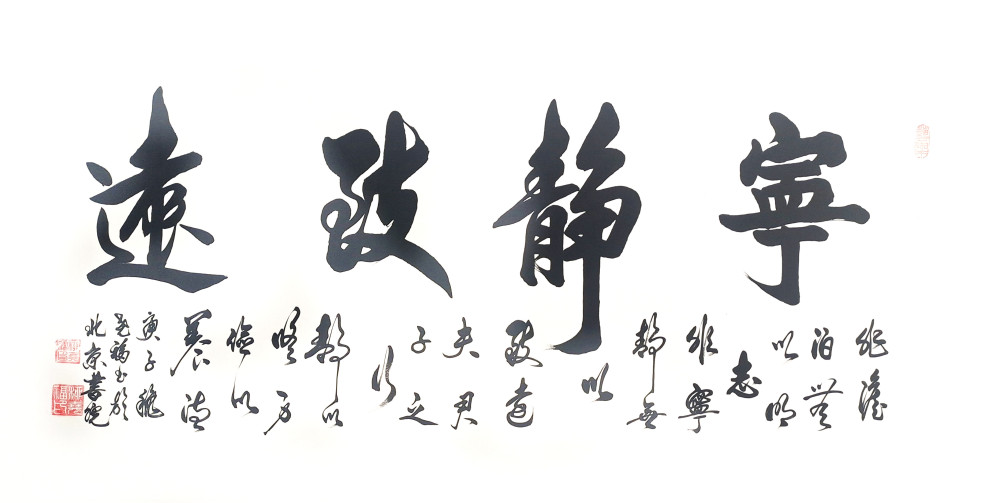 寧靜致遠
非澹
泊無
以明
志
非寧
靜無
以
致遠
夫君
子之
行
靜以
修身
儉以
養德
庚子秋
福書於
北京